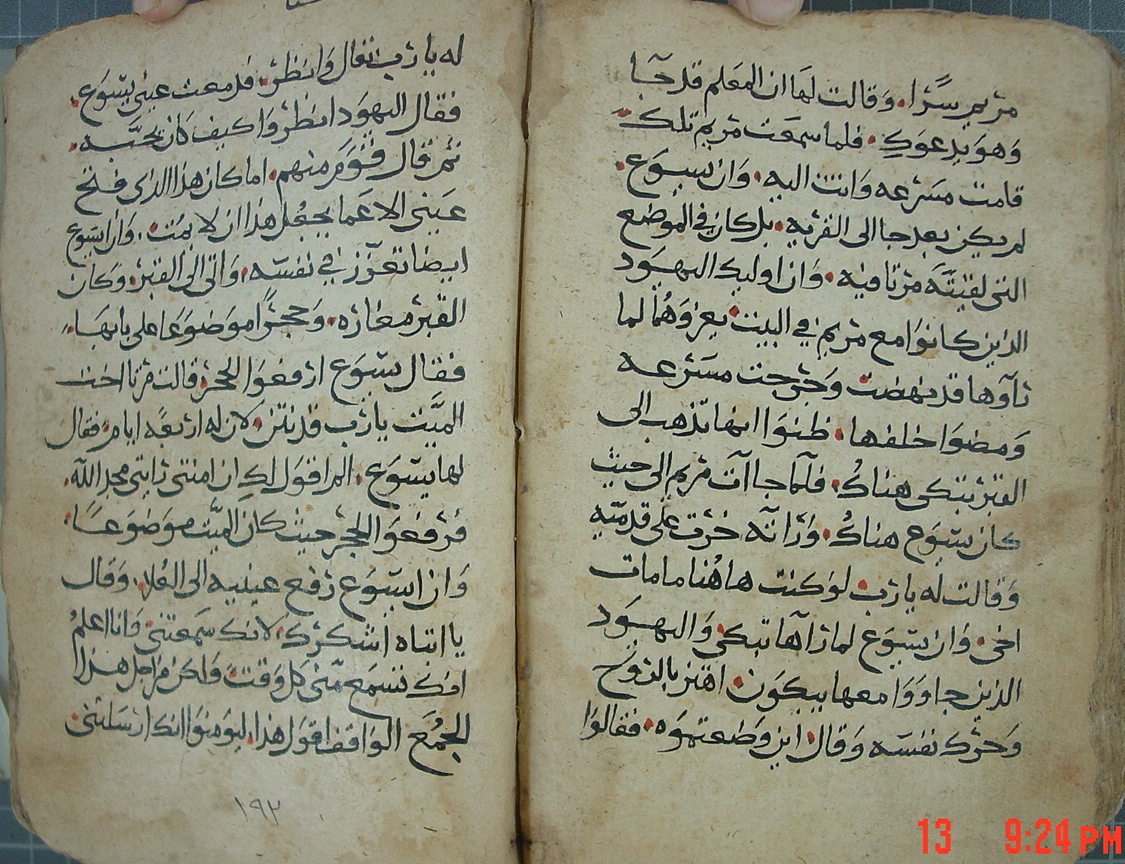 مريم سرًا. وقالت لها ان المعلم قد جآا
وهو يدعوكِ. فلما سمعت مريم تلك
قامت مسرعه واتت اليه. وان يسوع.
لم يكن بعد جا الى القريه. بل كان في الموضع
التى لقيته مرتا فيه. وان اوليك اليهود
الذين كانوا مع مريم في البيت يعزوها لما
رآوها قد نهضت وخرجت مسرعه
ومضوا خلفها. ظنوا انها تذهب الى
القبر تبكى هناك. فلما جاات مريم الى حيث
كان يسوع هناك. وراته خرت على قدميه
وقالت له يارب لو كنت هاهنا ما مات
اخى. وان يسوع لما رآها تبكى واليهود
الذين جاووا معها يبكون. اهتز بالروح
وحرك نفسه وقال اين وضعتموه. فقالوا
له يارب تعال وانظر. فدمعت عينى يسوع.
فقال اليهود انظروا كيف كان يحبه.
ثم قال قوم منهم. اما كان هذا الذى فتح
عينى الاعما يجعل هذا ان لا يمت. وان يسوع
ايضا تعزز في نفسه. واتى الى القبر. وكان
القبر مغاره. وحجرًا موضوعا على بابها.
فقال يسوع ارفعوا الحجر. قالت مرتا اخت
الميت يارب قد نتن. لان له اربعه ايام. فقال
لها يسوع. الم اقول لك ان امنتى رايتى مجد الله.
فرفعوا الحجر حيث كان الميت موضوعًا.
وان يسوع رفع عينيه الى العُلا. وقال
يا ابتاه اشكرك. لانك سمعتنى. وانا اعلمُ
انك تسمع منى كل وقت. ولكن من اجل هذا
الجمع الواقف اقول هذا. ليومنوا انك ارسلتنى.
١٩٢
13 9:24 PM